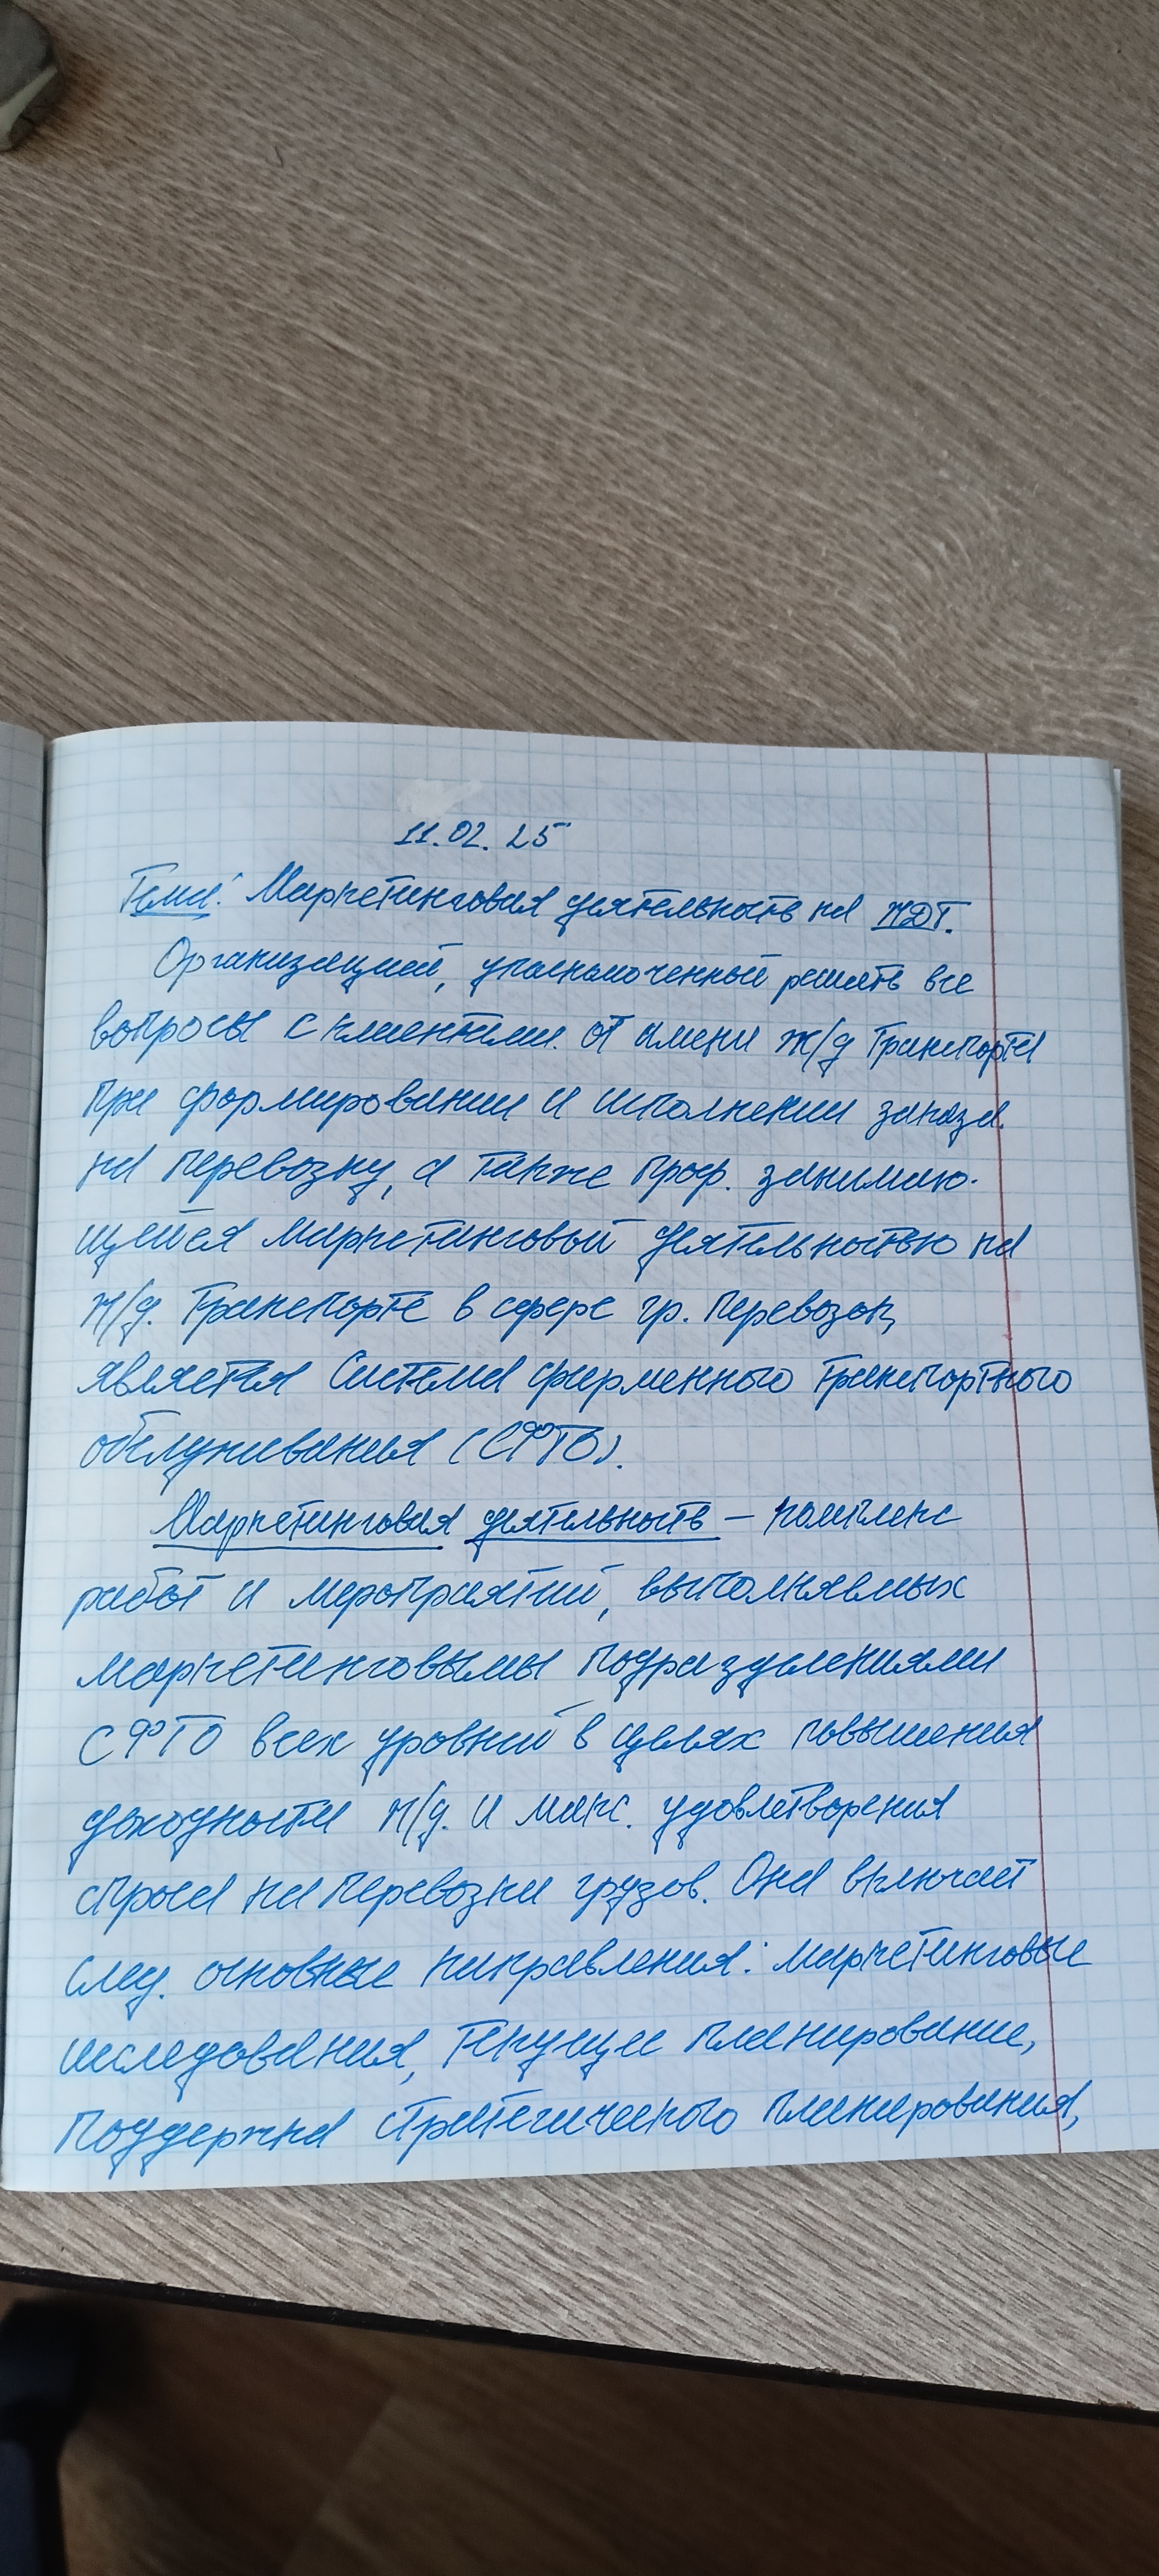 11.02.25
Тема: Маркетинговая деятельность на ЖДТ.
Организацией, уполномоченной решать все
вопросы с клиентами от имени ж/д транспорта
при формировании и исполнении заказа
на перевозку, а также проф. занимаю-
щейся маркетинговой деятельностью на
ж/д. транспорте в сфере гр. перевозок,
является Система фирменного транспортного
обслуживания (СФТО).
Маркетинговая деятельность – комплекс
работ и мероприятий, выполняемых
маркетинговыми подразделениями
СФТО всех уровней в целях повышения
доходности ж/д. и макс. удовлетворения
спроса на перевозки грузов. Она включает
след. основные направления: маркетинговые
исследования, текущее планирование,
поддержка стратегического планирования,